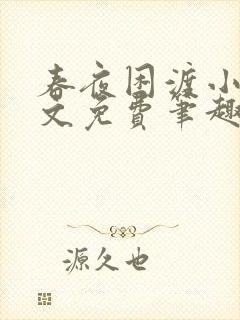 春夜困渡小
文免费笔趣
源久也